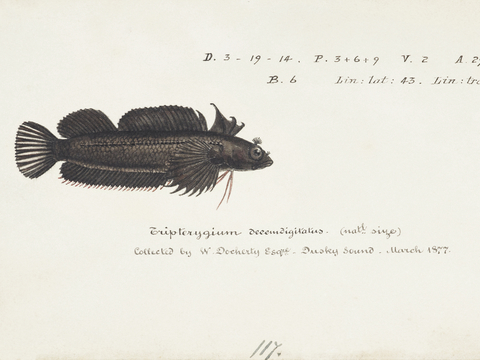 D. 3 - 19 - 14. P. 3+6+9 V. 2 A.
B. 6 Lin: lat: 43. Lin: tra
Tripterygium decemdigitatus. (natl size)
Collected by W. Docherty Esqre. Dusky Sound. March 1877.
117.